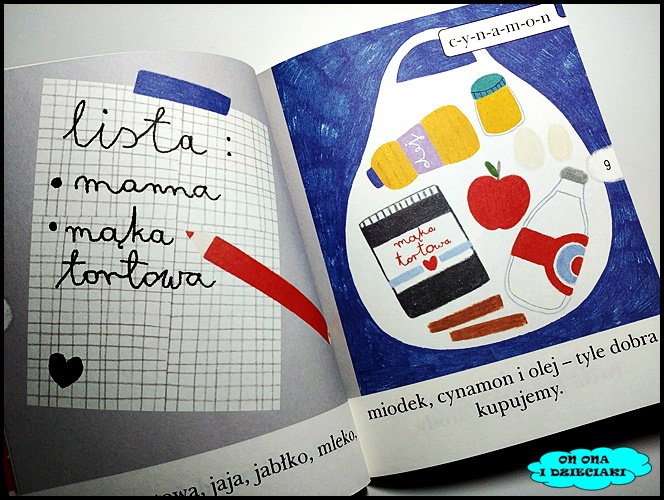 lista:
• manna
• mąka
tortowa
jaja, jabłko, mleko,
c-y-n-a-m-o-n
olej
mąka
tortowa
9
miodek, cynamon i olej – tyle dobra
kupujemy.
ON ONA
I DZIECIAKI